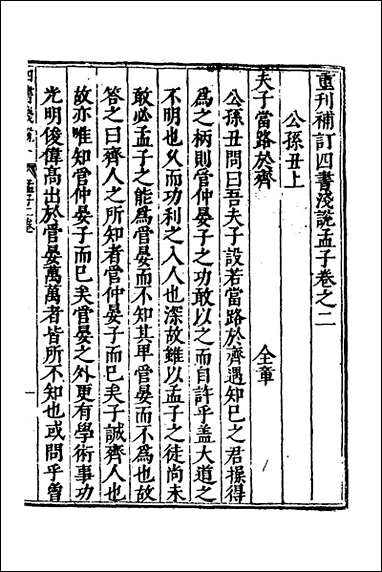 重刊補訂四書淺說孟子卷之二
公孫丑上
夫子當路於齊 全章
公孫丑問曰吾夫子設若當路於齊遇知巳之君操得
為之柄則管仲晏子之功敢以之而自許乎盖大道之
不明也久而功利之入人也深故雖以孟子之徒尚未
敢必孟子之能為管晏而不知其卑管晏而不為也故
答之曰齊人之所知者管仲晏子而巳矣子誠齊人也
故亦唯知管仲晏子而巳矣管晏之外更有學術事功
光明俊偉高出於管晏萬萬者皆所不知也或問乎曾
四書淺說 孟子二卷 一